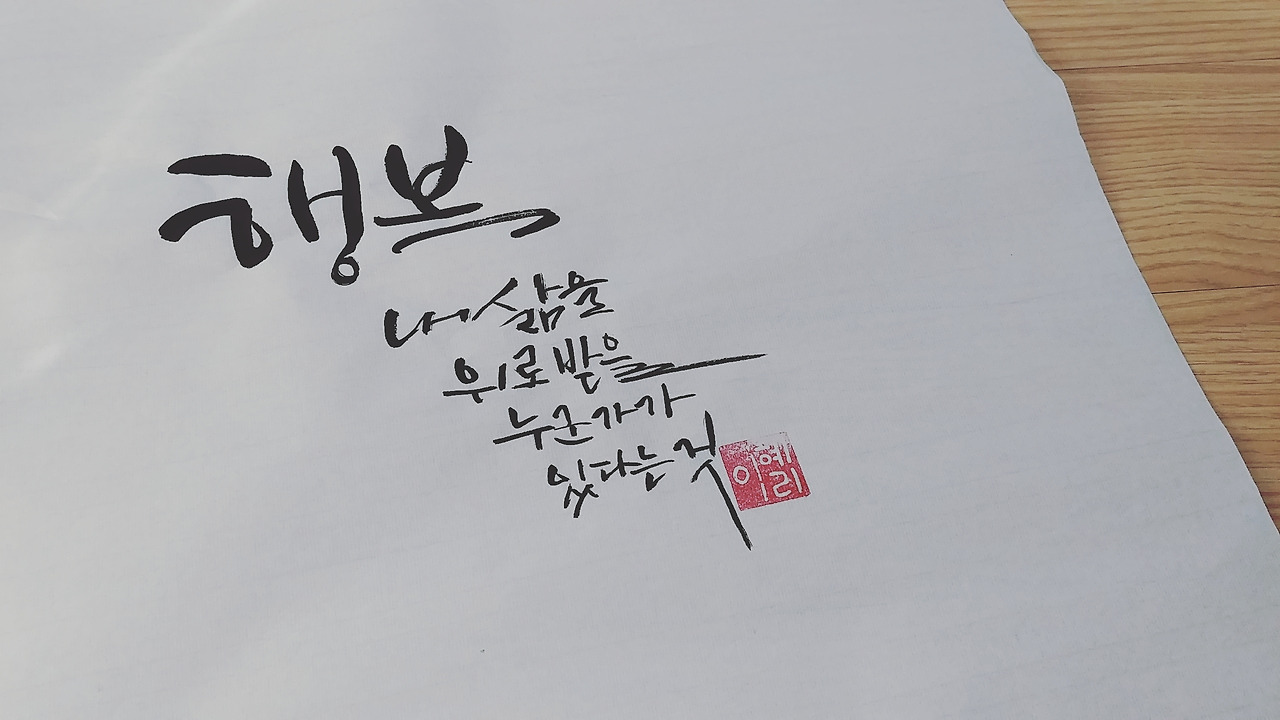 행복
내 삶을
위로 받을
누군가가
있다는 것
이예리